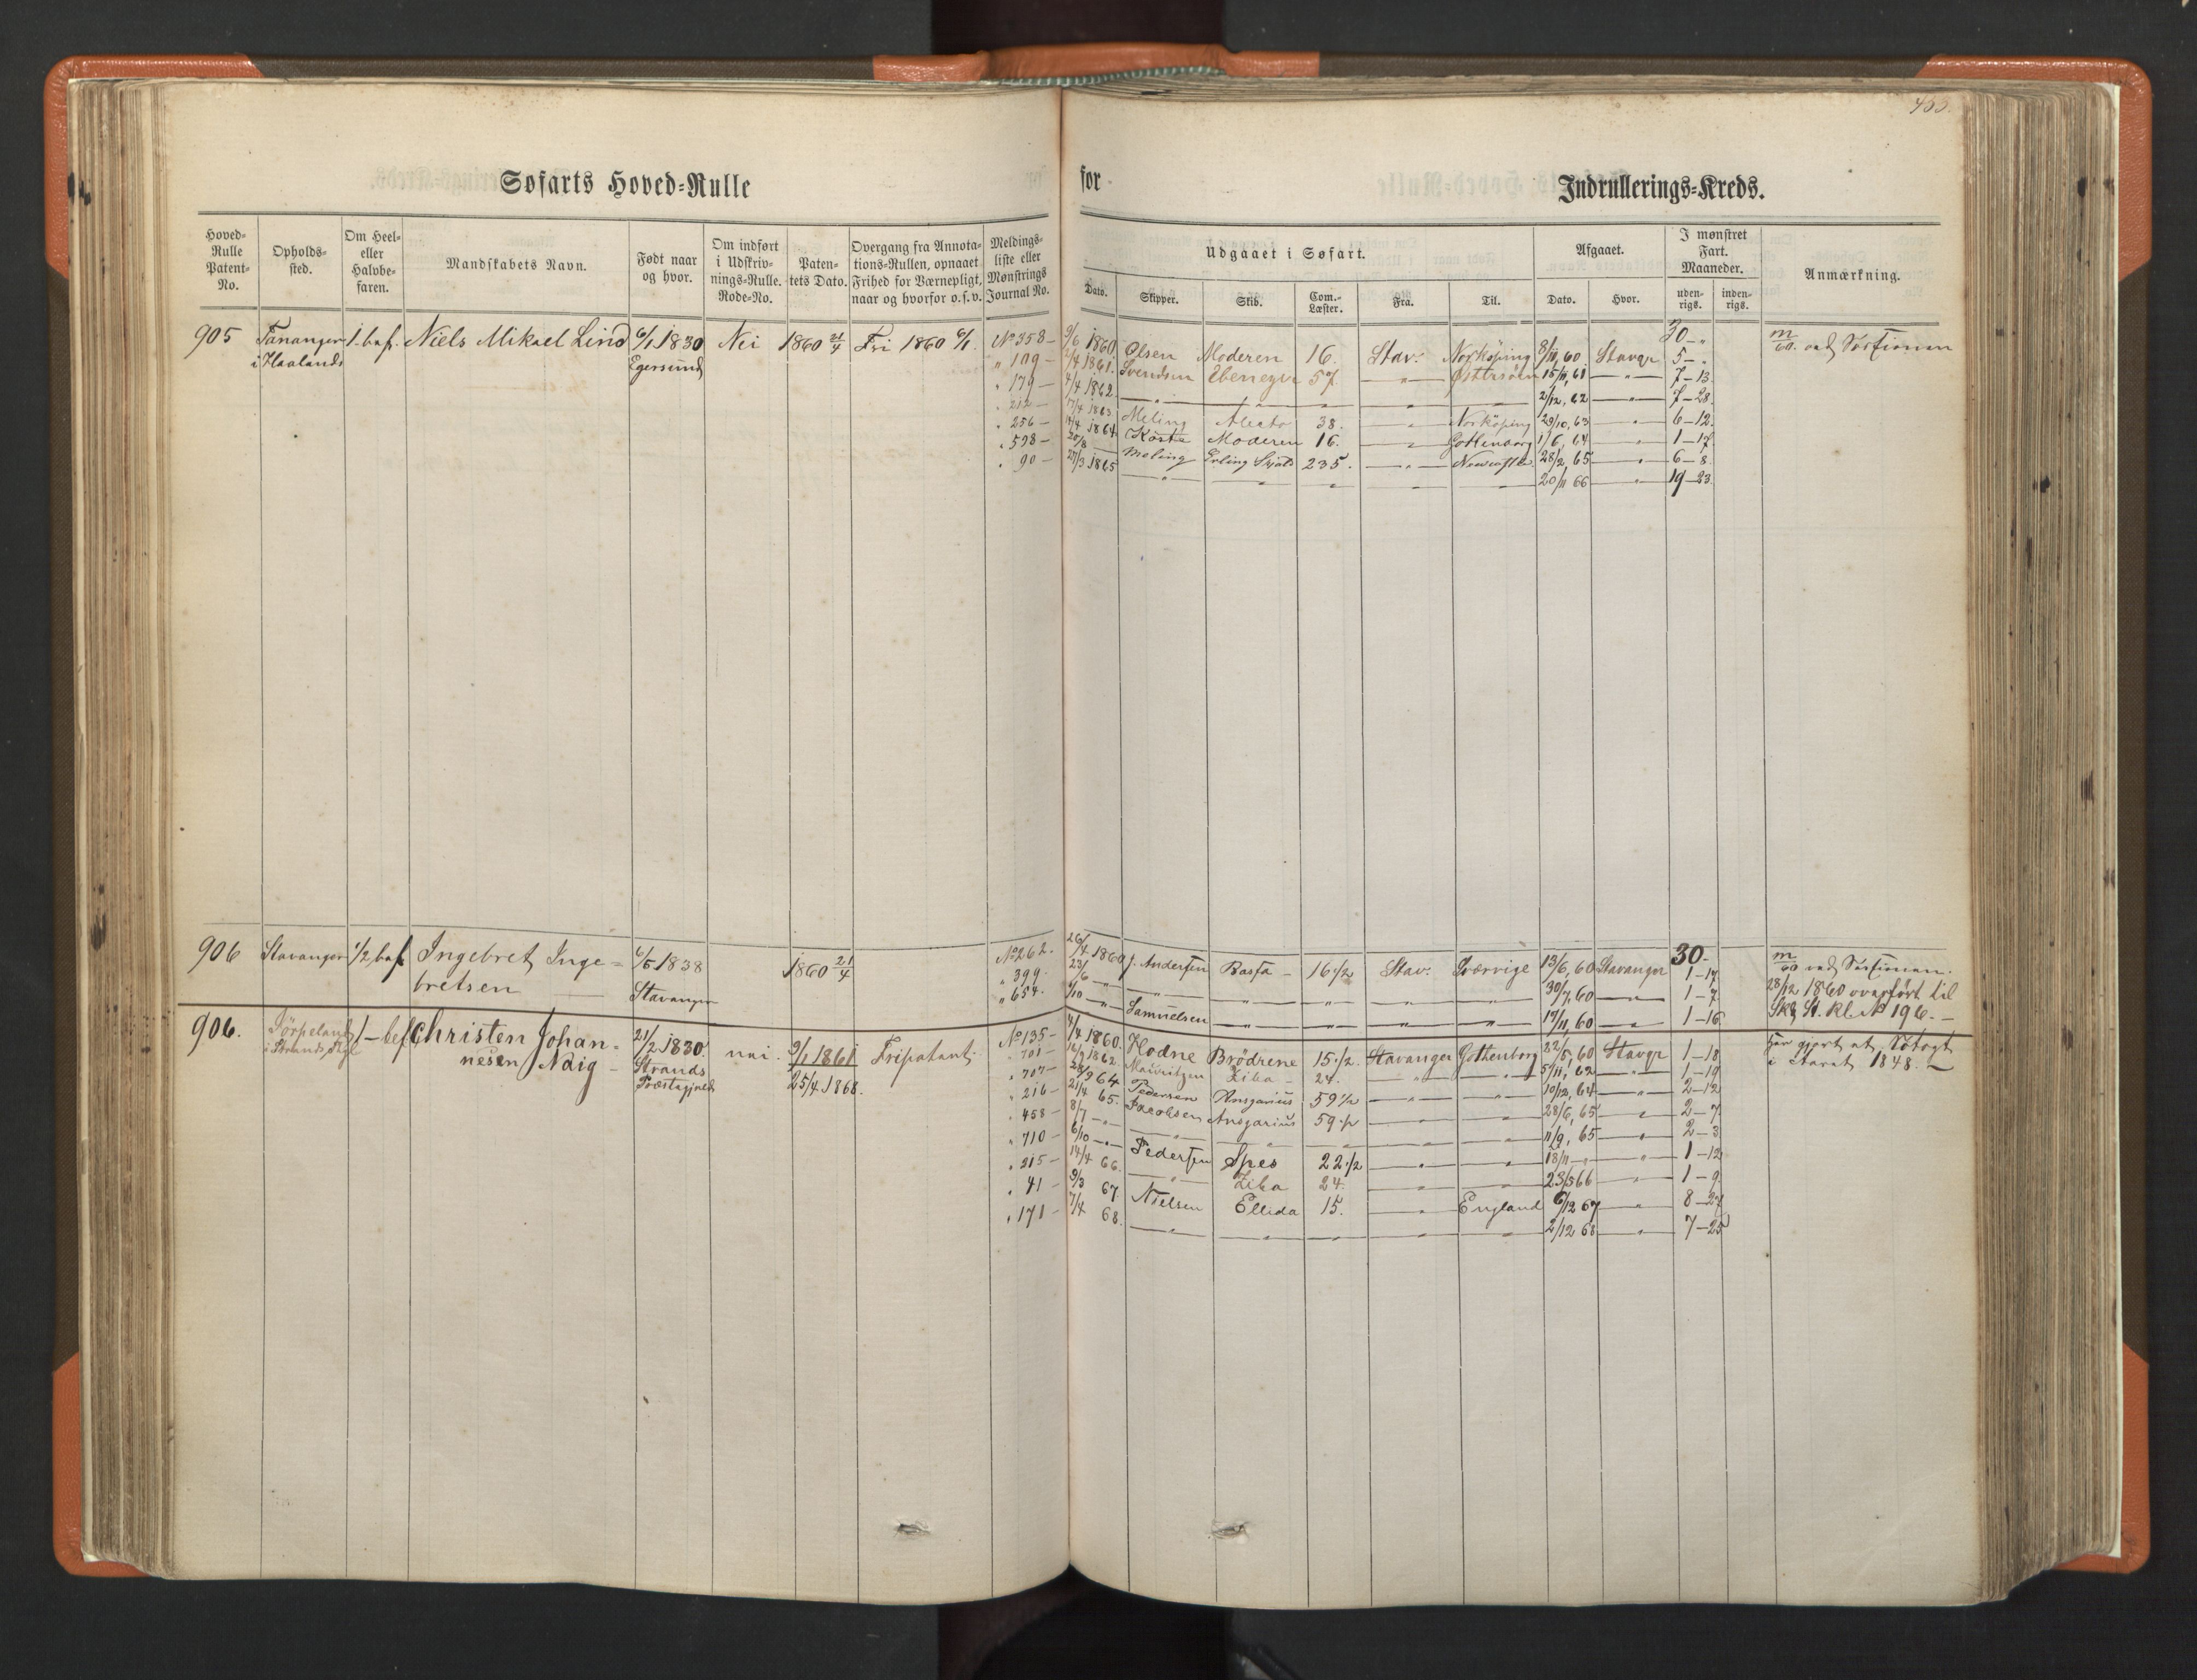 453.
Søfarts Hoved=Rulle
for
Indrullerings=Kreds.
Hoved= Rulle Patent= No.
Opholds= sted.
Om Heel= eller Halvbe= faren.
Mandskabets Navn.
Født naar og hvor.
Om indført i Udskriv= nings=Rulle. Rode=No.
Paten= tets Dato.
Overgang fra Annota= tions=Rullen, opnaaet Frihed for Værnepligt, naar og hvorfor o.s.v.
Meldings= liste eller Mønstrings Journal No.
Udgaaet i Søfart.
Dato.
Skipper.
Skib.
Com.= Læster.
Fra.
Til.
Afgaaet.
Dato.
Hvor.
I mønstret Fart. Maaneder.
uden= rigs.
inden= rigs.
Anmærkning.
905 Tananger 1. bef. Niels Mikael Lind 6/1 1830 Nei 1860 21/4 Fri 1860 6/1. No 358 – 9/6 1860 30 – " m/60. ved Sessionen
i Haalands Egersund " 109 – 2/4 1861. Olsen Moderen 16. Stav: Norköping 8/11, 60 Stavgr 5 – "
" 179 – 4/4 1862 Svendsen Ebenezer 57. – " – Østersöen 15/11, 61 – " – 7 – 13.
" 212 – 17/4 1863 – " – – " – 2/12, 62 – " – 7 – 28
" 256 – 14/4 1864 Meling Alecto 38. – " – Norköping 29/10, 63 – " – 6 – 12
" 598 – 20/8 Moderen 16. – " – Gothenborg 1/6, 64 – " – 1 – 17
" 90 – 27/3 1865 Meling Erling Skjals 235. – " – Newcastle 28/2, 65 – " – 6 – 8
– " – – " – 20/11 66 – " – 19 – 23.
906 Stavanger 1/2 bef. Ingebret Inge= 6/5 1838 1860 21/4 No 262. 26/4 1860 J. Andersen Basta – 16 1/2 Stav: Sverrige 13/6, 60 Stavanger 30. m/60 ved Sessionen.
bretsen Stavanger " 399. 23/6 – " – – " – 30/7, 60 – " – 1 – 17
" 654. 1/10 – " – Samuelsen – " – 19/11, 60 – " – 1 – 7
1 – 16
28/12 1860 overført til
No 196. –
906. Jörpeland 1 – bef Christen Johan= 21/2 1830. nei. 9/1 1861 Fripatent. No 135 – 4/4 1860. Hodne Brödrene 15 1/2 Stavanger Gothenborg 22/5, 60 Stavgr 1 – 18 Har gjort et Søtogt
i Strands Pgl nesen Naig – Strands Præstegjeld 25/4 1868. " 701 – 1862. Mauritzen Zika – 24. – " – 5/11, 62 – " – 1 – 19 i Aaret 1848. –
" 707 – 28/9 64 Pedersen Ansgarius 59 1/2 – " – 10/12, 64 – " – 2 – 12
" 216 – 21/4 65. Jacobsen Ansgarius 59 1/2 – " – 28/6, 65 – " – 2 – 7
" 458 – 8/7 – " – – " – 11/9, 65 – " – 2 – 3
" 710 – 6/10 – " – Pedersen Spes 22 1/2 – " – 13/11 – " – 1 – 12
" 215 – 14/4 66. – " – Zika 24. – " – 23/5 66 – " – 1 – 9
" 41 – 9/3 67. Nielsen Ellida 15. – " – England 6/12 67 – " – 8 – 27
" 171 – 7/4 68. – " – – " – 2/12 68 – " – 7 – 25